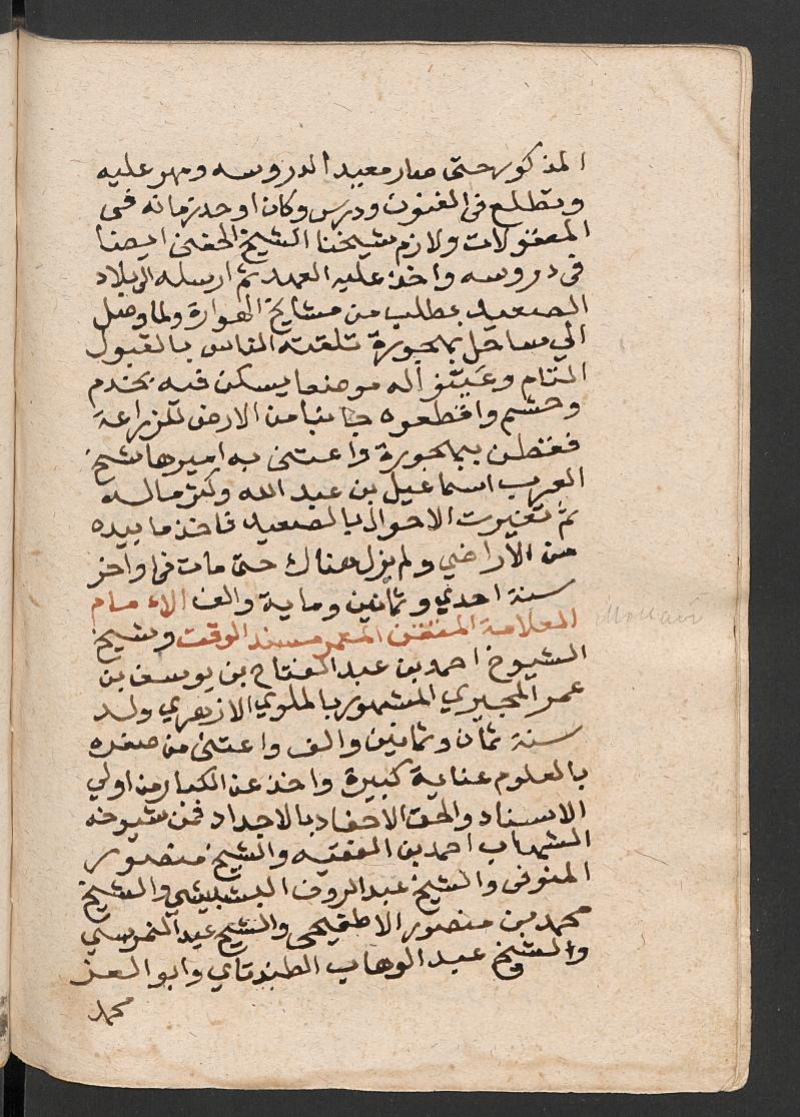 المذكور حتى صار معيد الدروسه ومهر عليه
وتطلع فى الفنون ودرس وكان اوحد زمانه فى
المعقولات ولازم شيخنا الشيخ الحفنى ايضا
فى دروسه واخذ عليه العهد ثم ارسله الى بلاد
الصعيد بطلب من مشايخ الهوارة ولما وصل
الى ساحل بمجورة تلقته الناس بالقبول
التام وعينوا له موضعا يسكن فيه بخدم
وحشم واقطعوه جانبا من الارض للزراعة
فقطن ببمجورة واعتنى به اميرها شيخ
العرب اسماعيل بن عبد الله وكثر ماله
ثم تغيرت الاحوال بالصعيد فاخذ ما بيده
من الأراضي ولم يزل هناك حتى مات فى اواخر
سنة احدي وثمانين وماية والف الامام
العلامة المتفنن المعمر مسند الوقت وشيخ
الشيوخ احمد بن عبد الفتاح بن يوسف بن
عمر المجيري المشهور بالملوي الازهري ولد
سنة ثمان وثمانين والف واعتنى من صغره
بالعلوم عناية كبيرة واخذ عن الكبار من اولي
الاسناد والحق الاحفاد بالاجداد فمن شيوخه
الشهاب احمد بن الفقيه والشيخ منصور
المنوفى والشيخ عبد الروف البشبيشي والشيخ
محمد بن منصور الاطفيحى والشيخ عيد النمرسي
والشيخ عبد الوهاب الطندتاي وابو العز
محمد